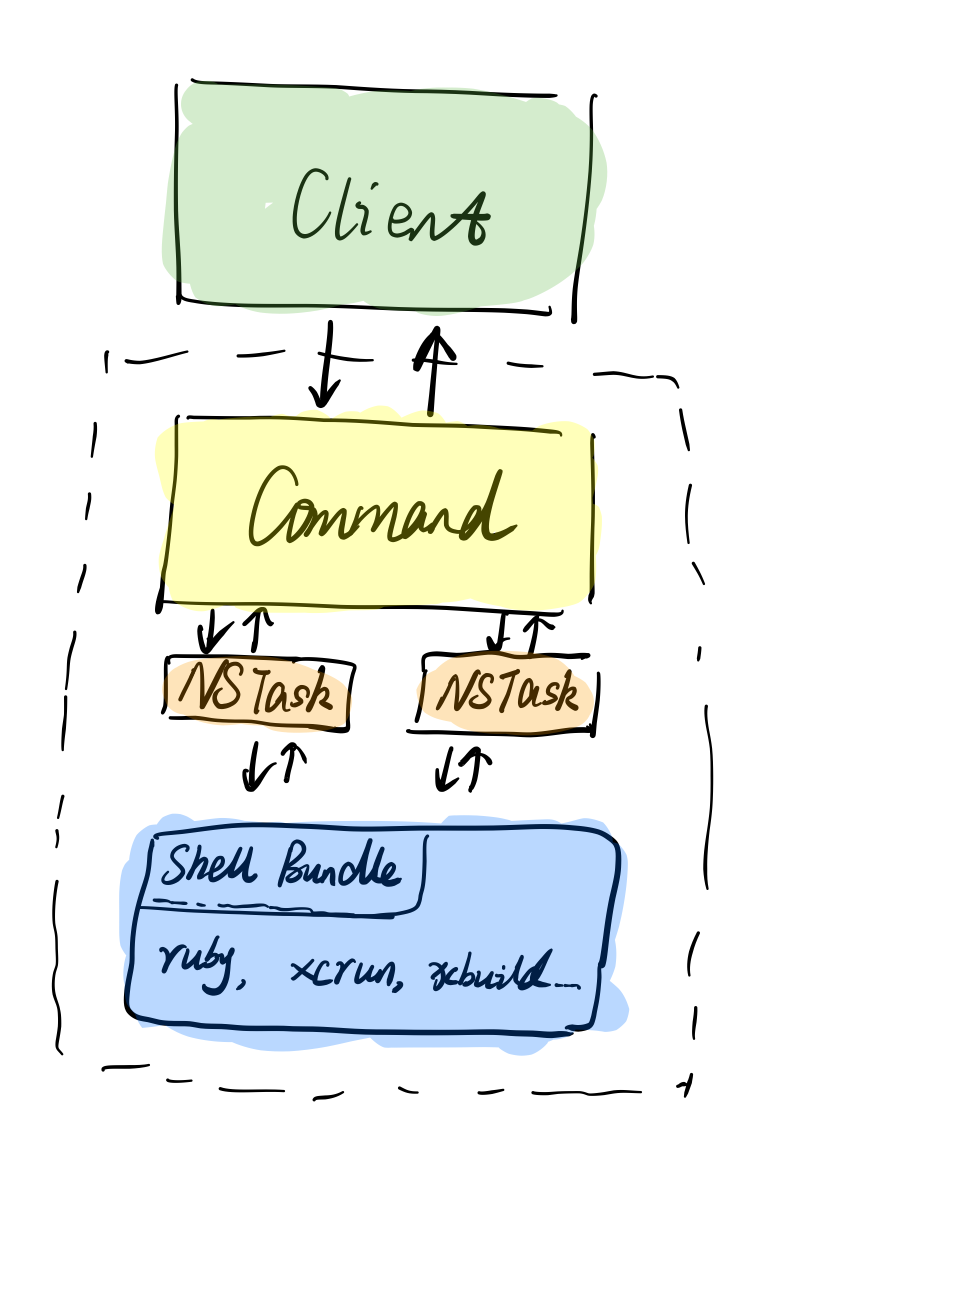 Client
Command
NSTask NSTask
Shell Bundle
ruby, xcrun, xcbuild...